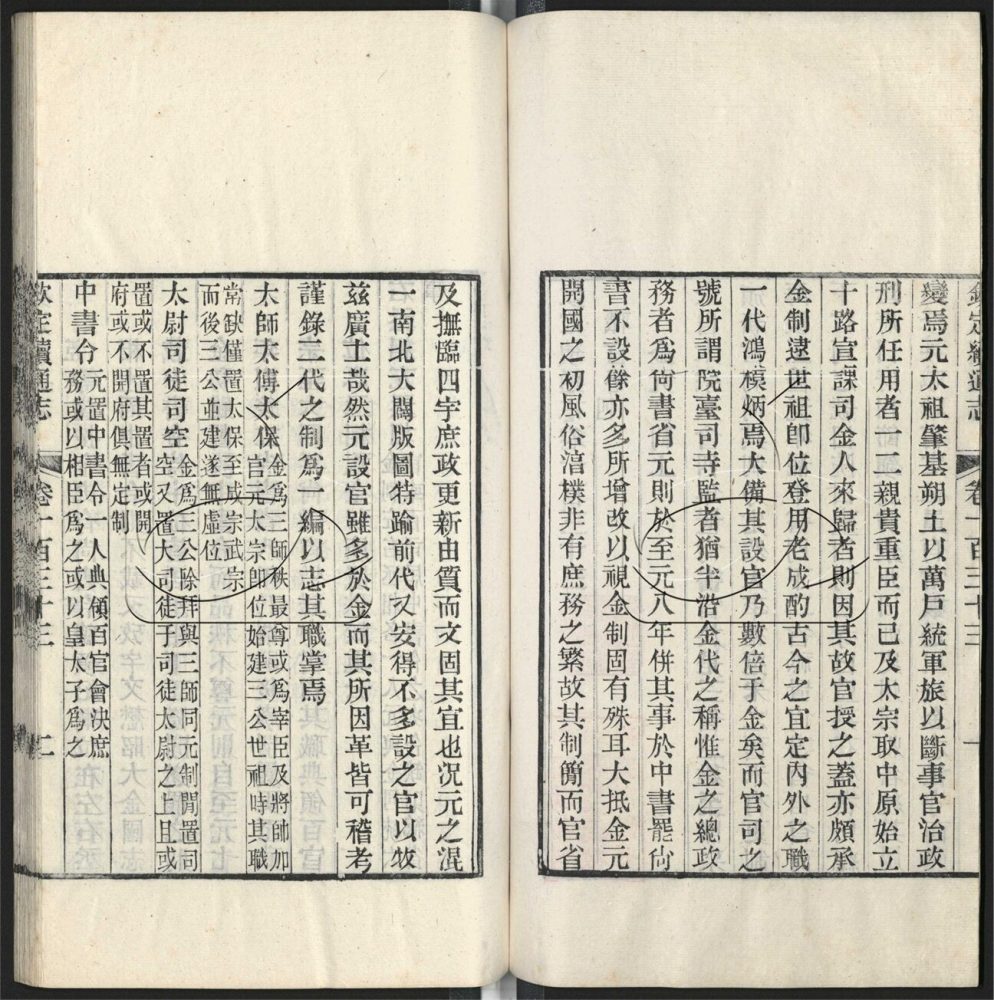 欽定續通志 卷一百三十三 一
變焉元太祖肇基朔土以萬戶統軍旅以斷事官治政
刑所任用者一二親貴重臣而已及太宗取中原始立
十路宣課司金人來歸者則因其故官授之蓋亦頗承
金制逮世祖卽位登用老成酌古今之宜定內外之職
一代鴻模炳焉大備其設官乃數倍于金矣而官司之
號所謂院臺司寺監者猶半沿金代之稱惟金之總政
務者爲尙書省元則於至元八年併其事於中書罷尙
書不設餘亦多所增改以視金制固有殊耳大抵金元
開國之初風俗湻樸非有庶務之繁故其制簡而官省
及撫臨四宇庶政更新由質而文固其宜也况元之混
一南北大闢版圖特踰前代又安得不多設之官以牧
兹廣土哉然元設官雖多於金而其所因革皆可稽考
謹錄二代之制爲一編以志其職掌焉
太師太傅太保金爲三師秩最尊或爲宰臣及將帥加
官元太宗卽位始建三公世祖時其職
常缺僅置太保至成宗武宗
而後三公並建遂無虛位
太尉司徒司空金爲三公除拜與三師同元制閒置司
空又置大司徒于司徒太尉之上且或
置或不置其置者或開
府或不開府俱無定制
中書令元置中書令一人典領百官會決庶
務或以相臣爲之或以皇太子爲之
欽定續通志 卷一百三十三 二